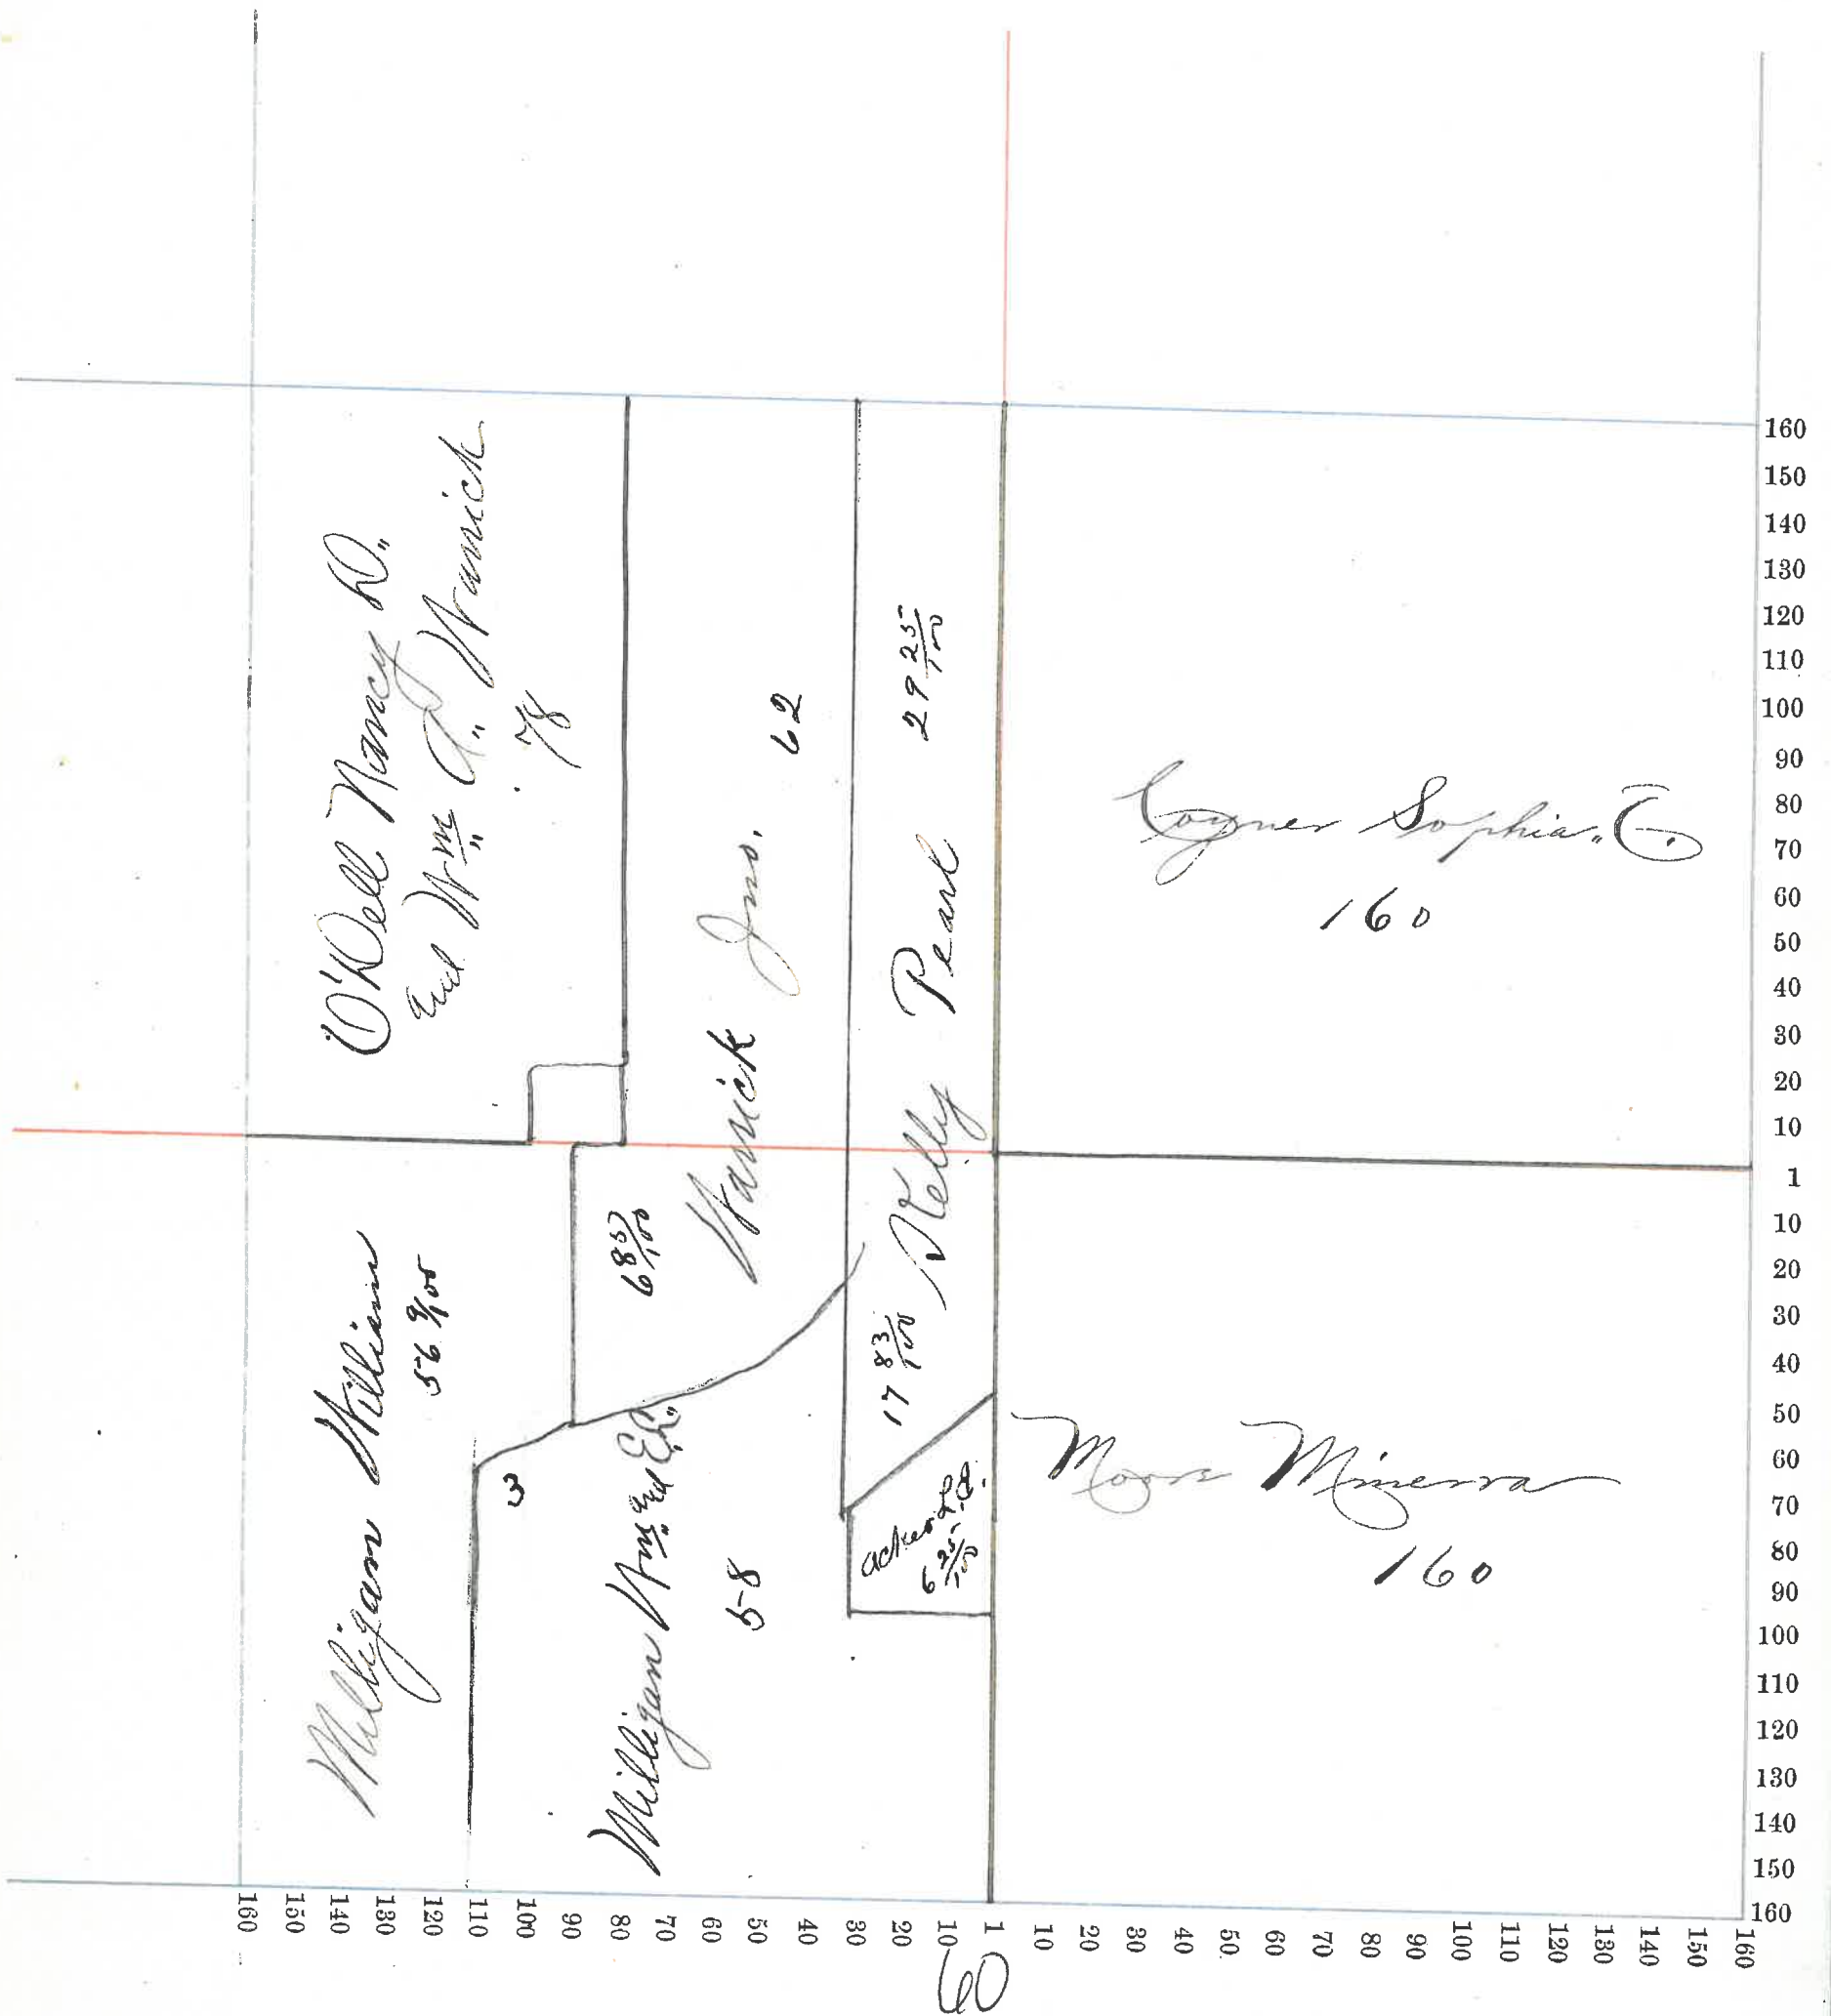 O'Dell Nancy D.
and Wm A. Warrick
78
Warrick Jno.
62
6 85/100
29 25/100
Kelly Pearl
17 83/100
Milligan William
56 9/100
3
Milligan Wm and E.
58
Acker L.B.
6 25/100
Coyner Sophia E.
160
Moore Minerva
160
160
150
140
130
120
110
100
90
80
70
60
50
40
30
20
10
1
10
20
30
40
50
60
70
80
90
100
110
120
130
140
150
160
160 150 140 130 120 110 100 90 80 70 60 50 40 30 20 10 1 10 20 30 40 50 60 70 80 90 100 110 120 130 140 150 160
60